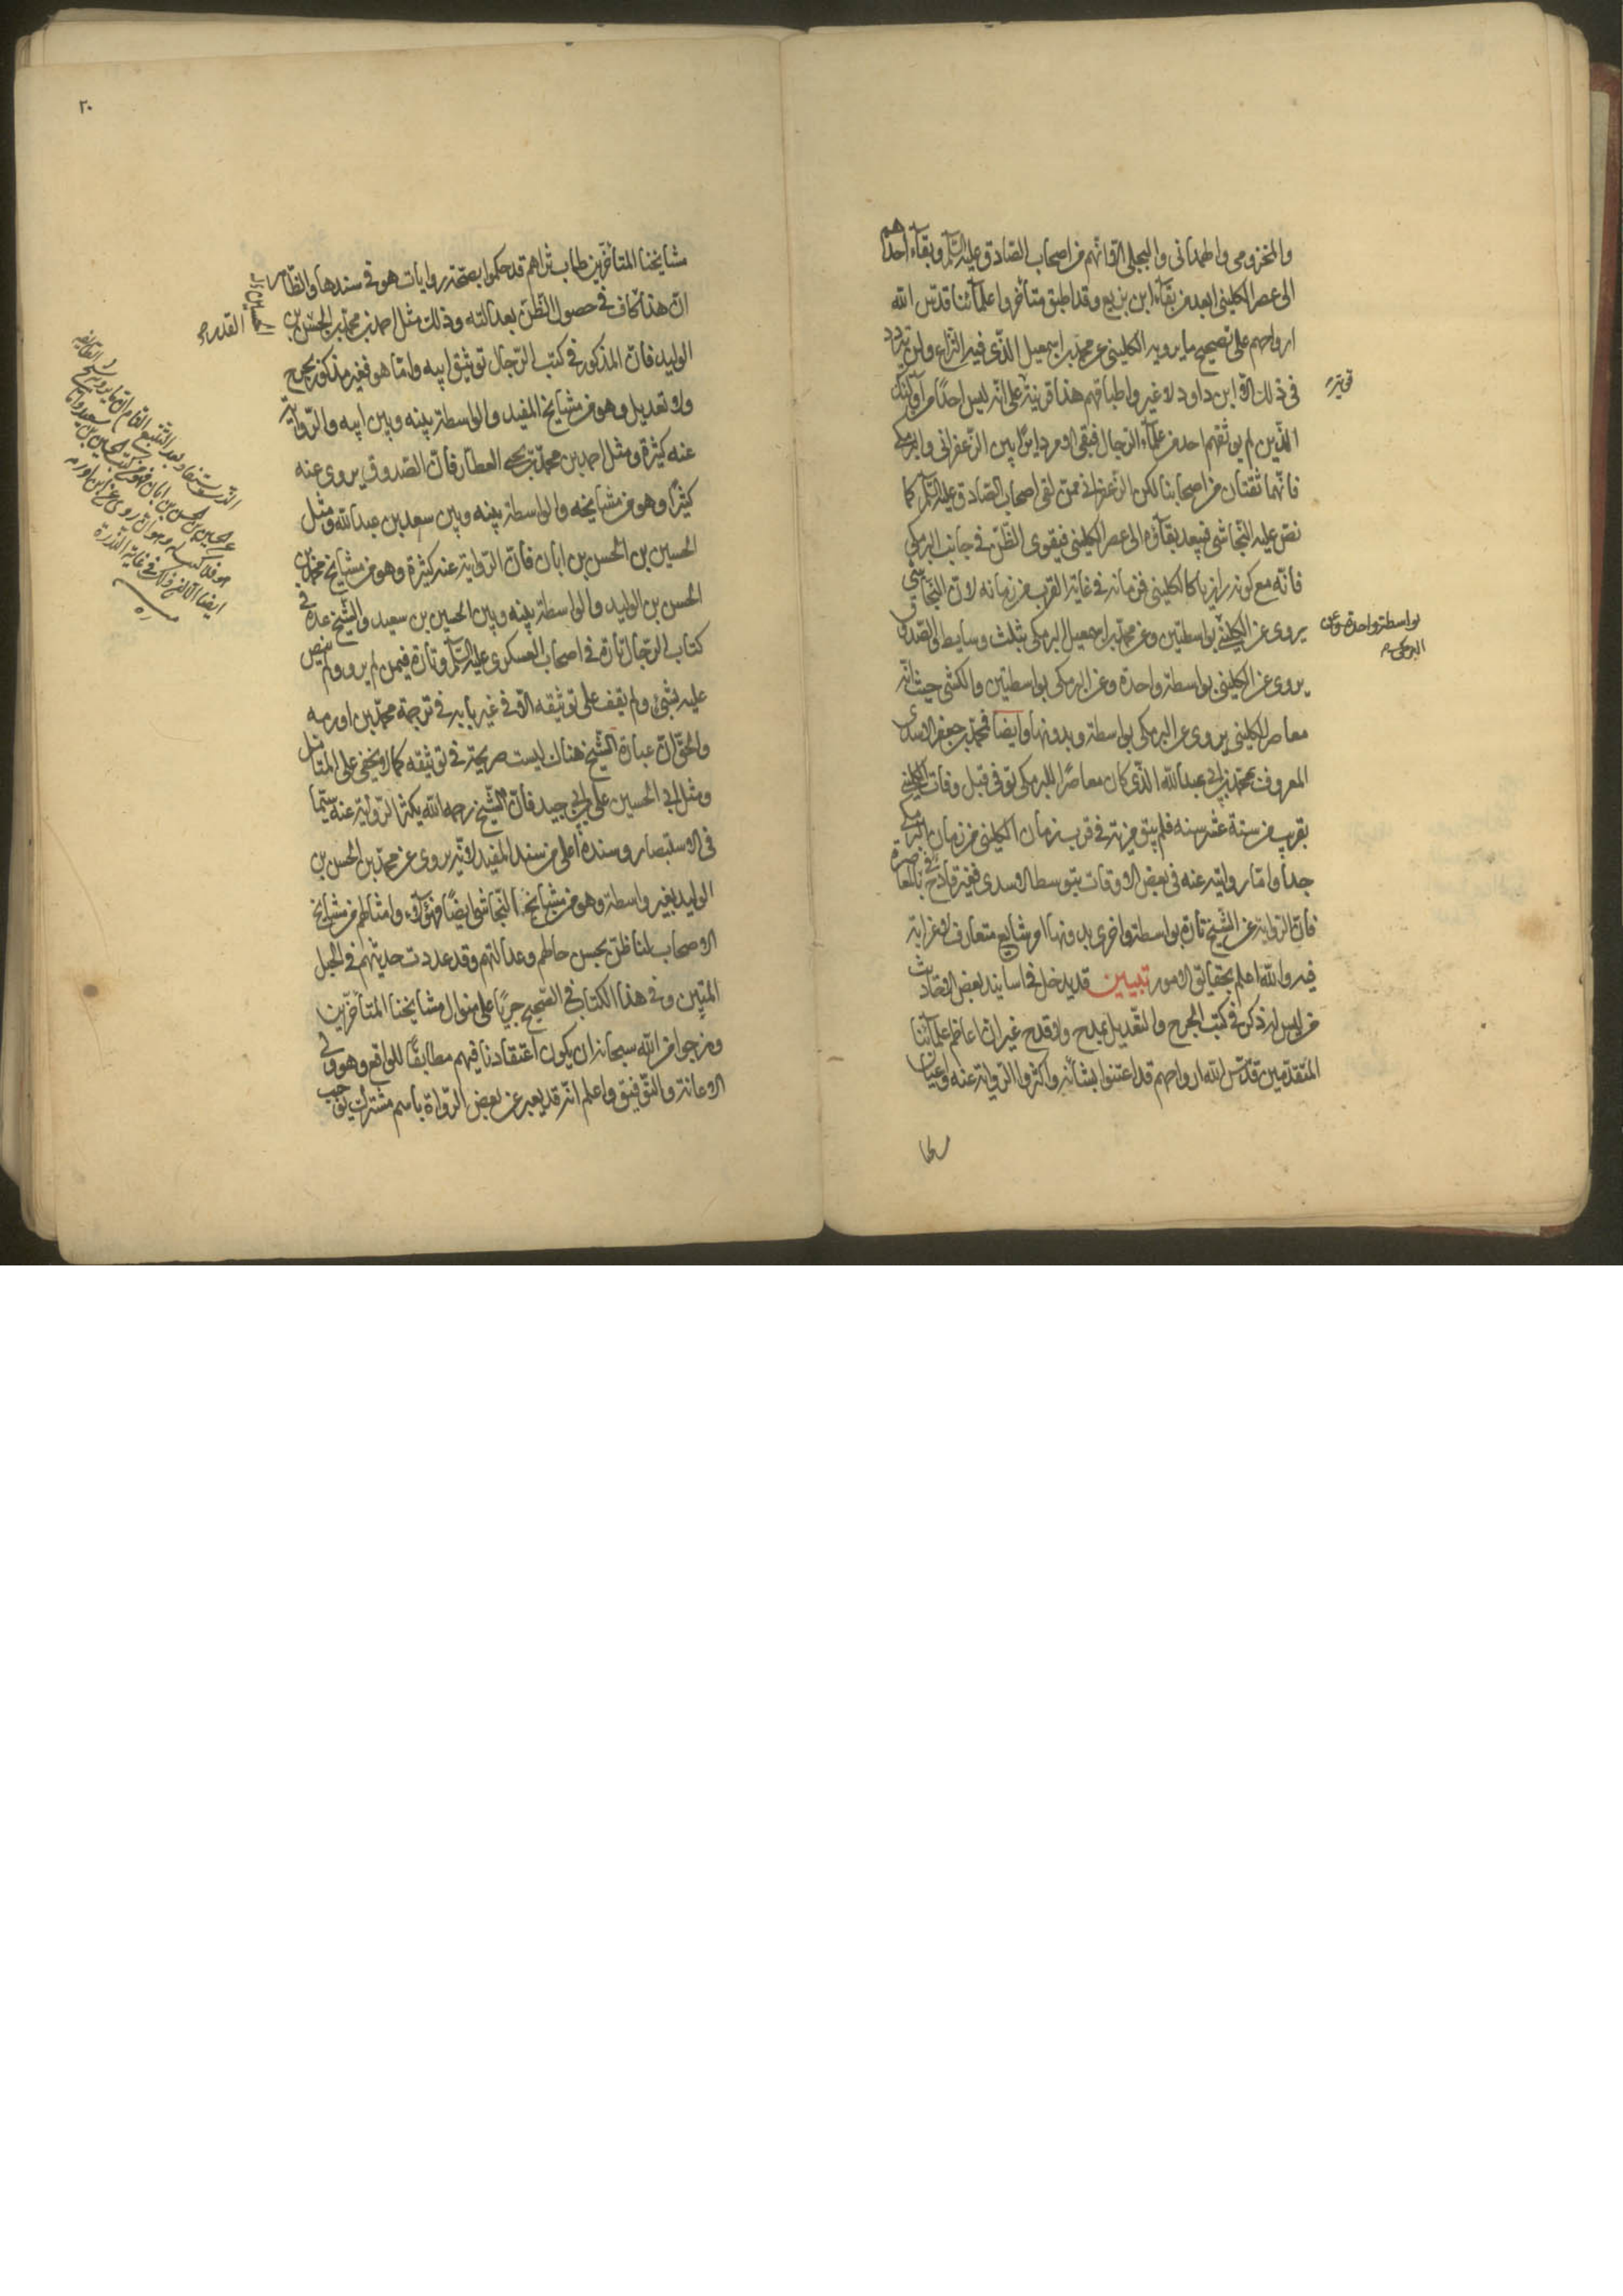 والمخزومى والهمدانى والبجلى الا انهم من اصحاب الصادق عليه السلم وبقآء احدهم
الى عصر الكلينى ابعد من بقآء ابن بزيع وقد اطبق متأخروا علمآئنا قدس الله
ارواحهم على تصحيح ما يرويه الكلينى عن محمد بن اسمعيل الذى فيه النزاع ولم يتردد
فى ذلك الا ابن داود لا غير واطباقهم هذا قرينة على انه ليس احدا من اولئك
الذين لم يوثقهم احد من علمآء الرجال فبقى الامر دايرا بين الزعفرانى والبرمكى
فانهما ثقتان من اصحابنا لكن الزعفرانى ممن لقى اصحاب الصادق عليه السلم كما
نص عليه النجاشى فيبعد بقآؤه الى عصر الكلينى فيقوى الظن فى جانب البرمكى
فانه مع كونه رازيا كالكلينى فزمانه فى غاية القرب من زمانه لان النجاشى
يروى عن الكلينى بواسطتين وعن محمد بن اسمعيل البرمكى بثلث وسايط والصدوق
يروى عن الكلينى بواسطة واحدة وعن البرمكى بواسطتين والكشى حيث انه
معاصر للكلينى يروى عن البرمكى بواسطة وبدونها وايضا فمحمد بن جعفر الاسدى
المعروف بمحمد بن ابى عبد الله الذى كان معاصرا للبرمكى توفى قبل وفات الكلينى
بقريب من سنة عشر سنه فلم يبق مزية فى قرب زمان الكلينى من زمان البرمكى
جدا واما روايته عنه فى بعض الاوقات بتوسط الاسدى فغير قادح فى المعاصرة
فان الرواية عن الشيخ تارة بواسطة واخرى بدونها امر شايع متعارف لا غرابة
فيه والله اعلم بحقايق الامور تبيين قد يدخل فى اسانيد بعض الاحاديث
من ليس له ذكر فى كتب الجرح والتعديل بمدح ولا قدح غير ان اعاظم علمآئنا
المتقدمين قدس الله ارواحهم قد اعتنوا بشأنه واكثروا الرواية عنه واعيان
بواسطة واحدة وعن
البرمكى
مشايخنا المتأخرين طاب ثراهم قد حكموا بصحة روايات هو فى سندها والظاهر
ان هذا كاف فى حصول الظن بعدالته وذلك مثل احمد بن محمد بن الحسن بن
الوليد فان المذكور فى كتب الرجال توثيق ابيه واما هو فغير مذكور بجرح
ولا تعديل وهو من مشايخ المفيد والواسطة بينه وبين ابيه والرواية
عنه كثيرة ومثل احمد بن محمد بن يحيى العطار فان الصدوق يروى عنه
كثيرا وهو من مشايخه والواسطة بينه وبين سعد بن عبد الله ومثل
الحسين بن الحسن بن ابان فان الرواية عنه كثيرة وهو من مشايخ محمد بن
الحسن بن الوليد والواسطة بينه وبين الحسين بن سعيد والشيخ عده فى
كتاب الرجال تارة فى اصحاب العسكرى عليه السلم وتارة فيمن لم يرو ولم ينص
عليه بشىء ولم يقف على توثيقه الا فى غير بابه فى ترجمة محمد بن اورمه
والحق ان عبارة الشيخ هناك ليست صريحة فى توثيقه كما لا يخفى على المتأمل
ومثل ابى الحسين على بن ابى جيد فان الشيخ رحمه الله يكثر الرواية عنه سيما
فى الاستبصار وسنده اعلى من سند المفيد لانه يروى عن محمد بن الحسن بن
الوليد بغير واسطة وهو من مشايخ النجاشى ايضا فهؤلآء وامثالهم من مشايخ
الاصحاب لنا ظن بحسن حالهم وعدالتهم وقد عددت حديثهم فى الحبل
المتين وفى هذا الكتاب فى الصحيح جريا على منوال مشايخنا المتأخرين
ونرجوا من الله سبحانه ان يكون اعتقادنا فيهم مطابقا للواقع وهو ولى
الاعانة والتوفيق واعلم انه قد يعبر عن بعض الرواة باسم مشترك يوجب